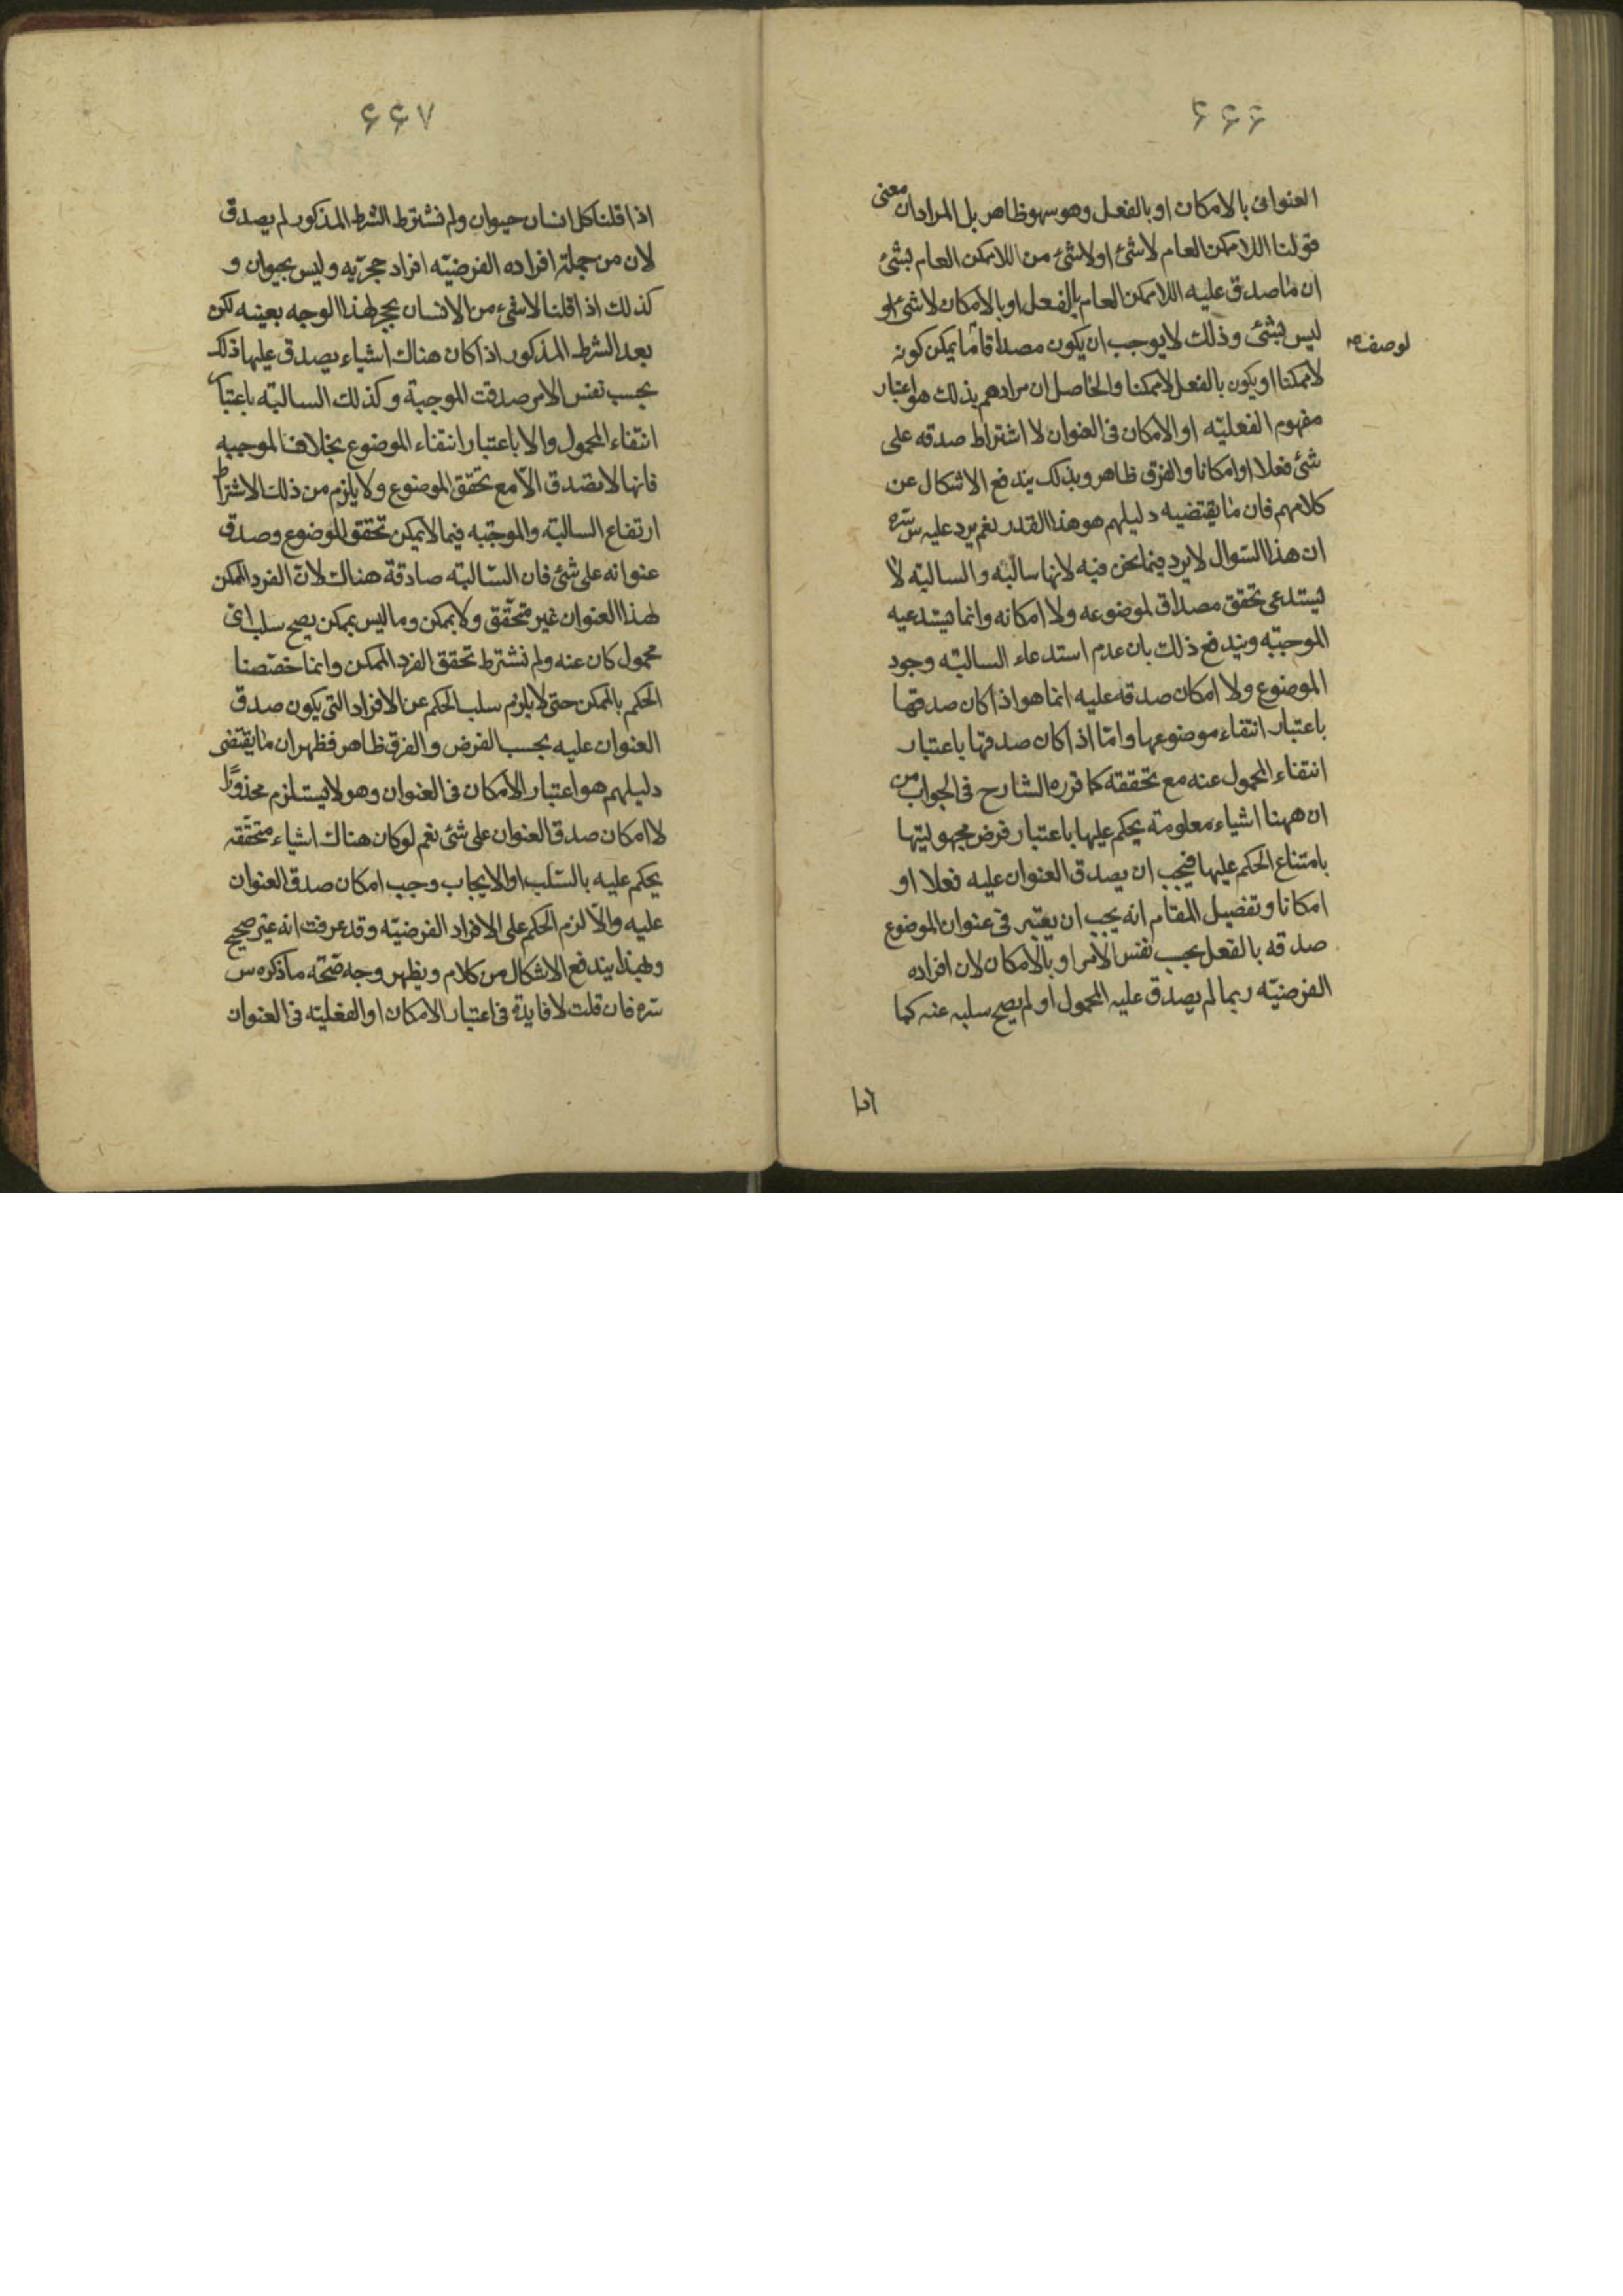 ۶۶۶
العنوانى بالامكان او بالفعل وهو سهو ظاهر بل المراد ان معنى
قولنا اللاممكن العام لا شئ او لا شئ من اللاممكن العام بشئ
ان ما صدق عليه اللاممكن العام بالفعل او بالامكان لا شئ او
ليس بشئ وذلك لا يوجب ان يكون مصداقا ما يمكن كونه
لوصف
لا ممكنا او يكون بالفعل لا ممكنا والحاصل ان مرادهم بذلك هو اعتبار
مفهوم الفعليّه او الامكان فى العنوان لا اشتراط صدقه على
شئ فعلا او امكانا والفرق ظاهر وبذلك يندفع الاشكال عن
كلامهم فان ما يقتضيه دليلهم هو هذا القدر نعم يرد عليه س سره
ان هذا السّوال لا يرد فيما نحن فيه لانها سالبه والسالبة لا
يستدعى تحقق مصداق لموضوعه ولا امكانه وانما يستدعيه
الموجبّه ويندفع ذلك بان عدم استدعاء السالبّه وجود
الموضوع ولا امكان صدقه عليه انما هو اذا كان صدقها
باعتبار انتفاء موضوعها وامّا اذا كان صدقها باعتبار
انتفاء المحمول عنه مع تحققه كما قرره الشارح فى الجواب من
ان ههنا اشياء معلومة يحكم عليها باعتبار فرض مجهوليتها
بامتناع الحكم عليها فيجب ان يصدق العنوان عليه فعلا او
امكانا وتفصيل المقام انه يجب ان يعتبر فى عنوان الموضوع
صدقه بالفعل بحسب نفس الامر او بالامكان لان افراده
الفرضيّه ربما لم يصدق عليه المحمول او لم يصح سلبه عنه كما
اذا
۶۶۷
اذا قلنا كل انسان حيوان ولم نشترط الشرط المذكور لم يصدق
لان من جملة افراده الفرضيّه افراد حجريّه وليس بحيوان و
كذلك اذا قلنا لا شئ من الانسان بحجر لهذا الوجه بعينه لكن
بعد الشرط المذكور اذا كان هناك اشياء يصدق عليها ذلك
بحسب نفس الامر صدقت الموجبة وكذلك السالبّه باعتبار
انتفاء المحمول والا باعتبار انتفاء الموضوع بخلاف الموجبه
فانها لا تصدق الاّ مع تحقّق الموضوع ولا يلزم من ذلك الاشتراط
ارتفاع السالبّه والموجبّه فيما لا يمكن تحقق الموضوع وصدق
عنوانه على شئ فان السّالبّه صادقة هناك لانّ الفرد الممكن
لهذا العنوان غير متحقّق ولا يمكن وما ليس بممكن يصح سلب اى
محمول كان عنه ولم نشترط تحقق الفرد الممكن وانما خصّصنا
الحكم بالممكن حتى لا يلزم سلب الحكم عن الافراد التى يكون صدق
العنوان عليه بحسب الفرض والفرق ظاهر فظهر ان ما يقتضى
دليلهم هو اعتبار الامكان فى العنوان وهو لا يستلزم محذورًا
لا امكان صدق العنوان على شئ نعم لو كان هناك اشياء متحقّقه
يحكم عليه بالسّلب او الايجاب وجب امكان صدق العنوان
عليه والاّ لزم الحكم على الافراد الفرضيّه وقد عرفت انه غير صحيح
وبهذا يندفع الاشكال من كلام ويظهر وجه صحّة ما ذكره س
سّره فان قلت لا فايدة فى اعتبار الامكان او الفعليّه فى العنوان